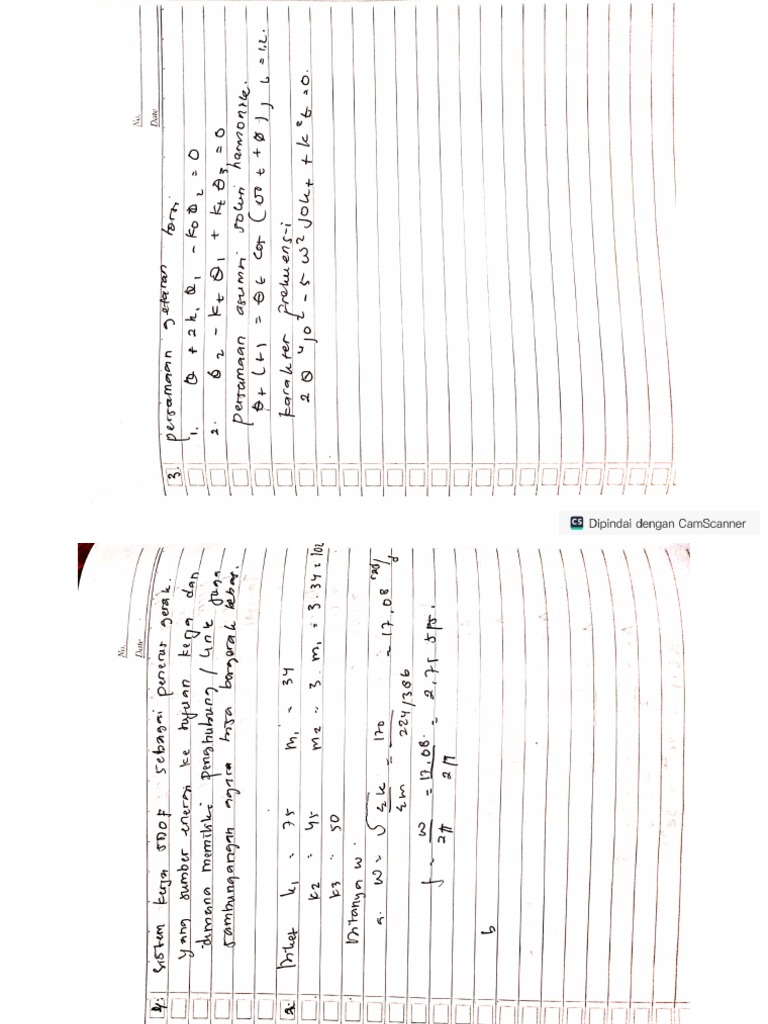 No.
Date
3. persamaan getaran torsi
1. θ + 2k, θ1 - k0θ2 = 0
2. θ2 - kt θ1 + kt θ3 = 0
persamaan asumsi solusi harmonik.
θt (t) = θt cos (ω t + φ), b = 1.2.
karakter frekuensi
Dipindai dengan CamScanner
No.
Date
sistem kerja SDOF sebagai penerus gerak.
yang sumber energi ke tujuan kerja dan
dimana memiliki penghubung / link juga
sambungangan agara bisa bergerak bebas.
2. Diket k1 = 75 m1 = 34
k2 = 45 m2 = 3. m1 = 3.34 = 102
k3 = 50
Ditanya ω.
a. ω = √Σk / Σm = 170 / 224/386 = 17,08 rad/
f = ω / 2π = 17,08 / 2π = 2,71
b